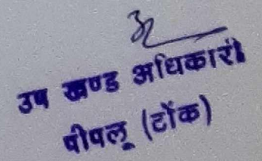 उप खण्ड अधिकारी
पीपलू (टोंक)